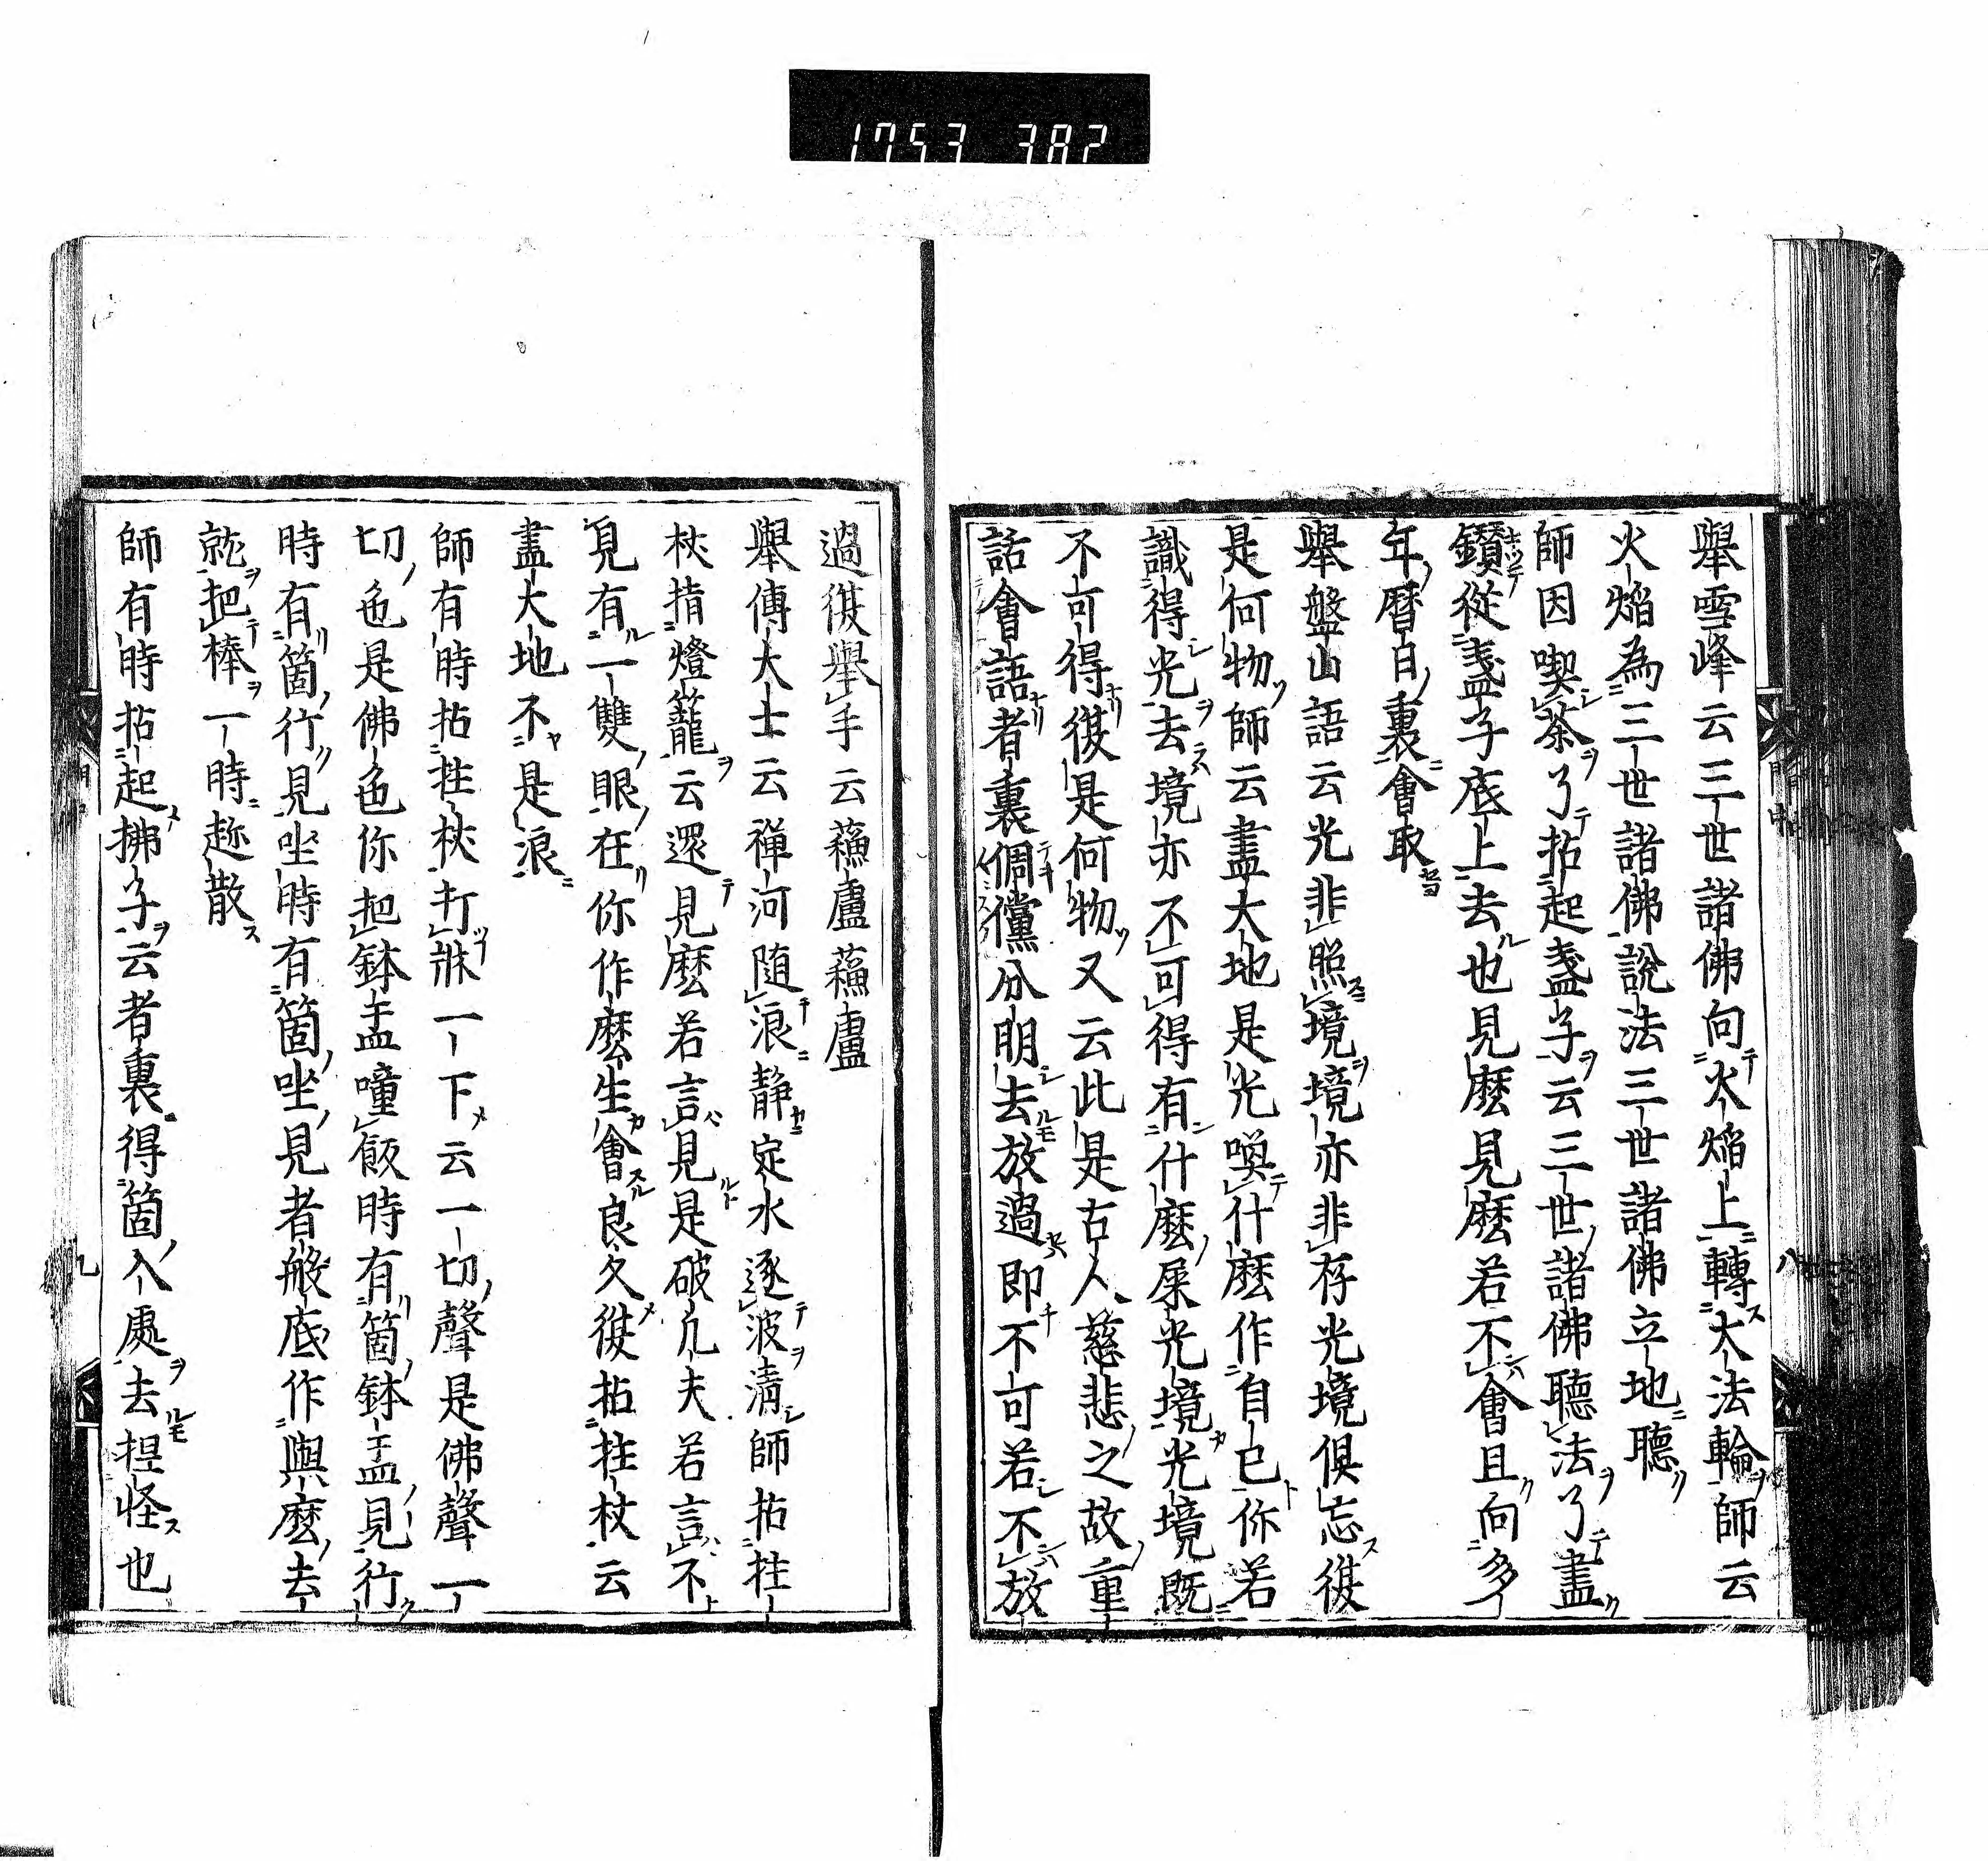 1753 382
舉雪峰云三世諸佛向火焔上轉大法輪師云
火焔為三世諸佛說法三世諸佛立地聽
師因喫茶了拈起盞子云三世諸佛聽法了盡
鑽從盞子底上去也見麼見麼若不會且向多
年曆日裏會取
舉盤山語云光非照境境亦非存光境俱忘復
是何物師云盡大地是光喚什麼作自己你若
識得光去境亦不可得有什麼屎光境光境既
不可得復是何物又云此是古人慈悲之故重
話會語者裏倜儻分明去放過即不可若不放
過復舉手云蘓盧蘓盧
舉傅大士云禪河随浪静定水逐波清師拈拄
杖指燈籠云還見麼若言見是破凡夫若言不
見有一雙眼在你作麼生會良久復拈拄杖云
盡大地不是浪
師有時拈拄杖打牀一下云一切聲是佛聲一
切色是佛色你把鉢盂噇飯時有箇鉢盂見行
時有箇行見坐時有箇坐見者般底作與麼去
就把棒一時趂散
師有時拈起拂子云者裏得箇入處去捏怪也
八
九